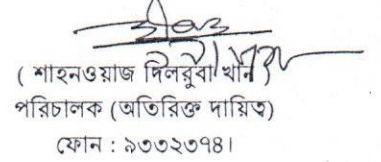 ( শাহনওয়াজ দিলরুবা খান )
পরিচালক (অতিরিক্ত দায়িত্ব)
ফোন : ৯৩৩২৩৭৪।